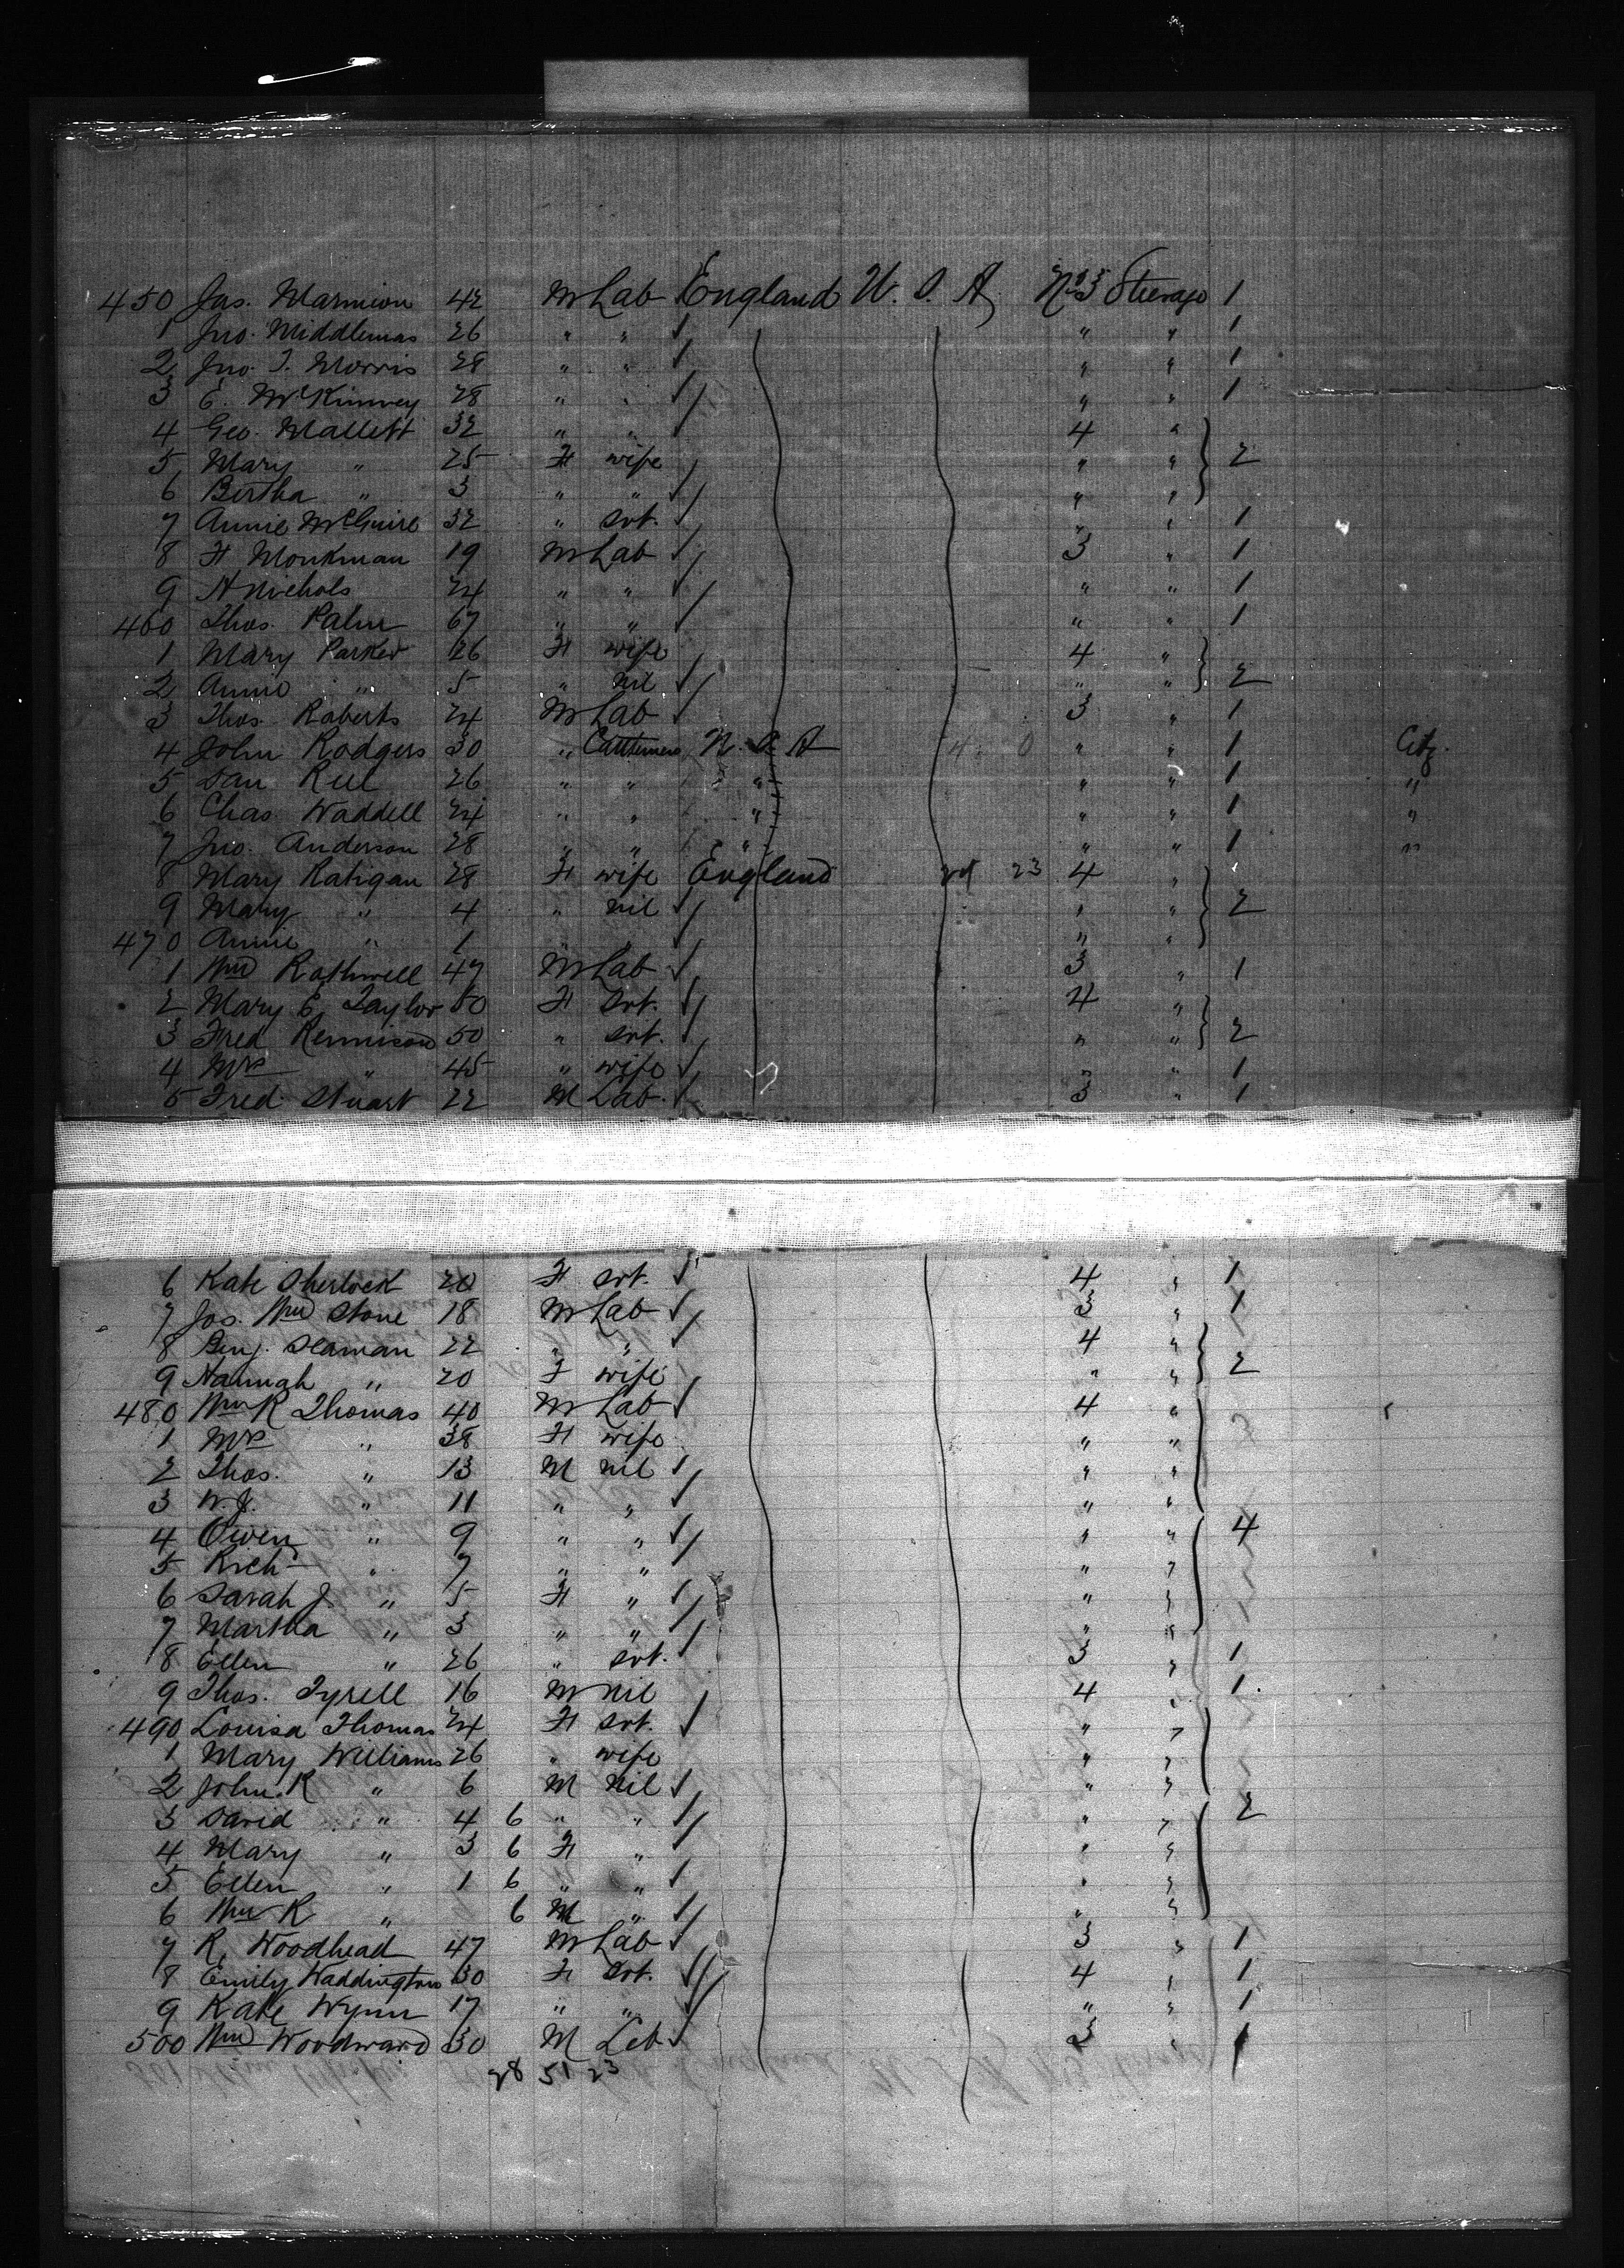 450 Jas. Marmion 42 M Lab England U. S. A No 3 Steerage 1
1 Jno. Middlemas 26 " " " " 1
2 Jno. T. Morris 28 " " " " 1
3 E. McKinney 28 " " " " 1
4 Geo. Mallett 32 " " 4 "
5 Mary " 25 F wife " " 2
6 Bertha " 3 " " " "
7 Annie McGuire 32 " svt. " " 1
8 H Monkman 19 M Lab 3 " 1
9 H Nichols 24 " " " " 1
460 Thos. Palin 67 " " " " 1
1 Mary Parker 26 F wife 4 "
2 Annie " 5 " nil " " 2
3 Thos. Roberts 24 M Lab 3 " 1
4 John Rodgers 30 " Cattlemen U. S. A 4 0 " " 1 Citz.
5 Dan Reil 26 " " " " " 1 "
6 Chas Waddell 24 " " " " " 1 "
7 Jno. Anderson 28 " " " " " 1 "
8 Mary Ratigan 28 F wife England 29 23 4 "
9 Mary " 4 " nil " " 2
470 Annie " 1 " " " "
1 Wm Rathwell 47 M Lab 3 " 1
2 Mary E Taylor 50 F svt. 4 "
3 Fred Rennison 50 " svt. " " 2
4 Mrs " 45 " wife " " 1
5 Fred Stuart 22 M Lab. 3 " 1
6 Kate Sherlock 20 F svt. 4 " 1
7 Jos. Wm Stone 18 M Lab 3 " 1
8 Benj. Seaman 22 " " 4 "
9 Hannah " 20 F wife " " 2
480 Wm R Thomas 40 M Lab 4 "
1 Mrs " 38 F wife " "
2 Thos. " 13 M nil " "
3 W. J. " 11 " " " "
4 Owen " 9 " " " " 4
5 Rich " 7 " " " "
6 Sarah J. " 5 F " " "
7 Martha " 3 " " " "
8 Ellen " 26 " svt. 3 " 1
9 Thos. Tyrell 16 M nil 4 " 1
490 Louisa Thomas 24 F svt. " "
1 Mary Williams 26 " wife " "
2 John R " 6 M nil " "
3 David " 4 6 " " " " 2
4 Mary " 3 6 F " " "
5 Ellen " 1 6 " " " "
6 Wm R " 6 M " " "
7 R. Woodhead 47 M Lab 3 " 1
8 Emily Waddington 30 F svt. 4 " 1
9 Kate Wynn 17 " " " " 1
500 Wm Woodward 30 M Lab 3 " 1
28 51 23